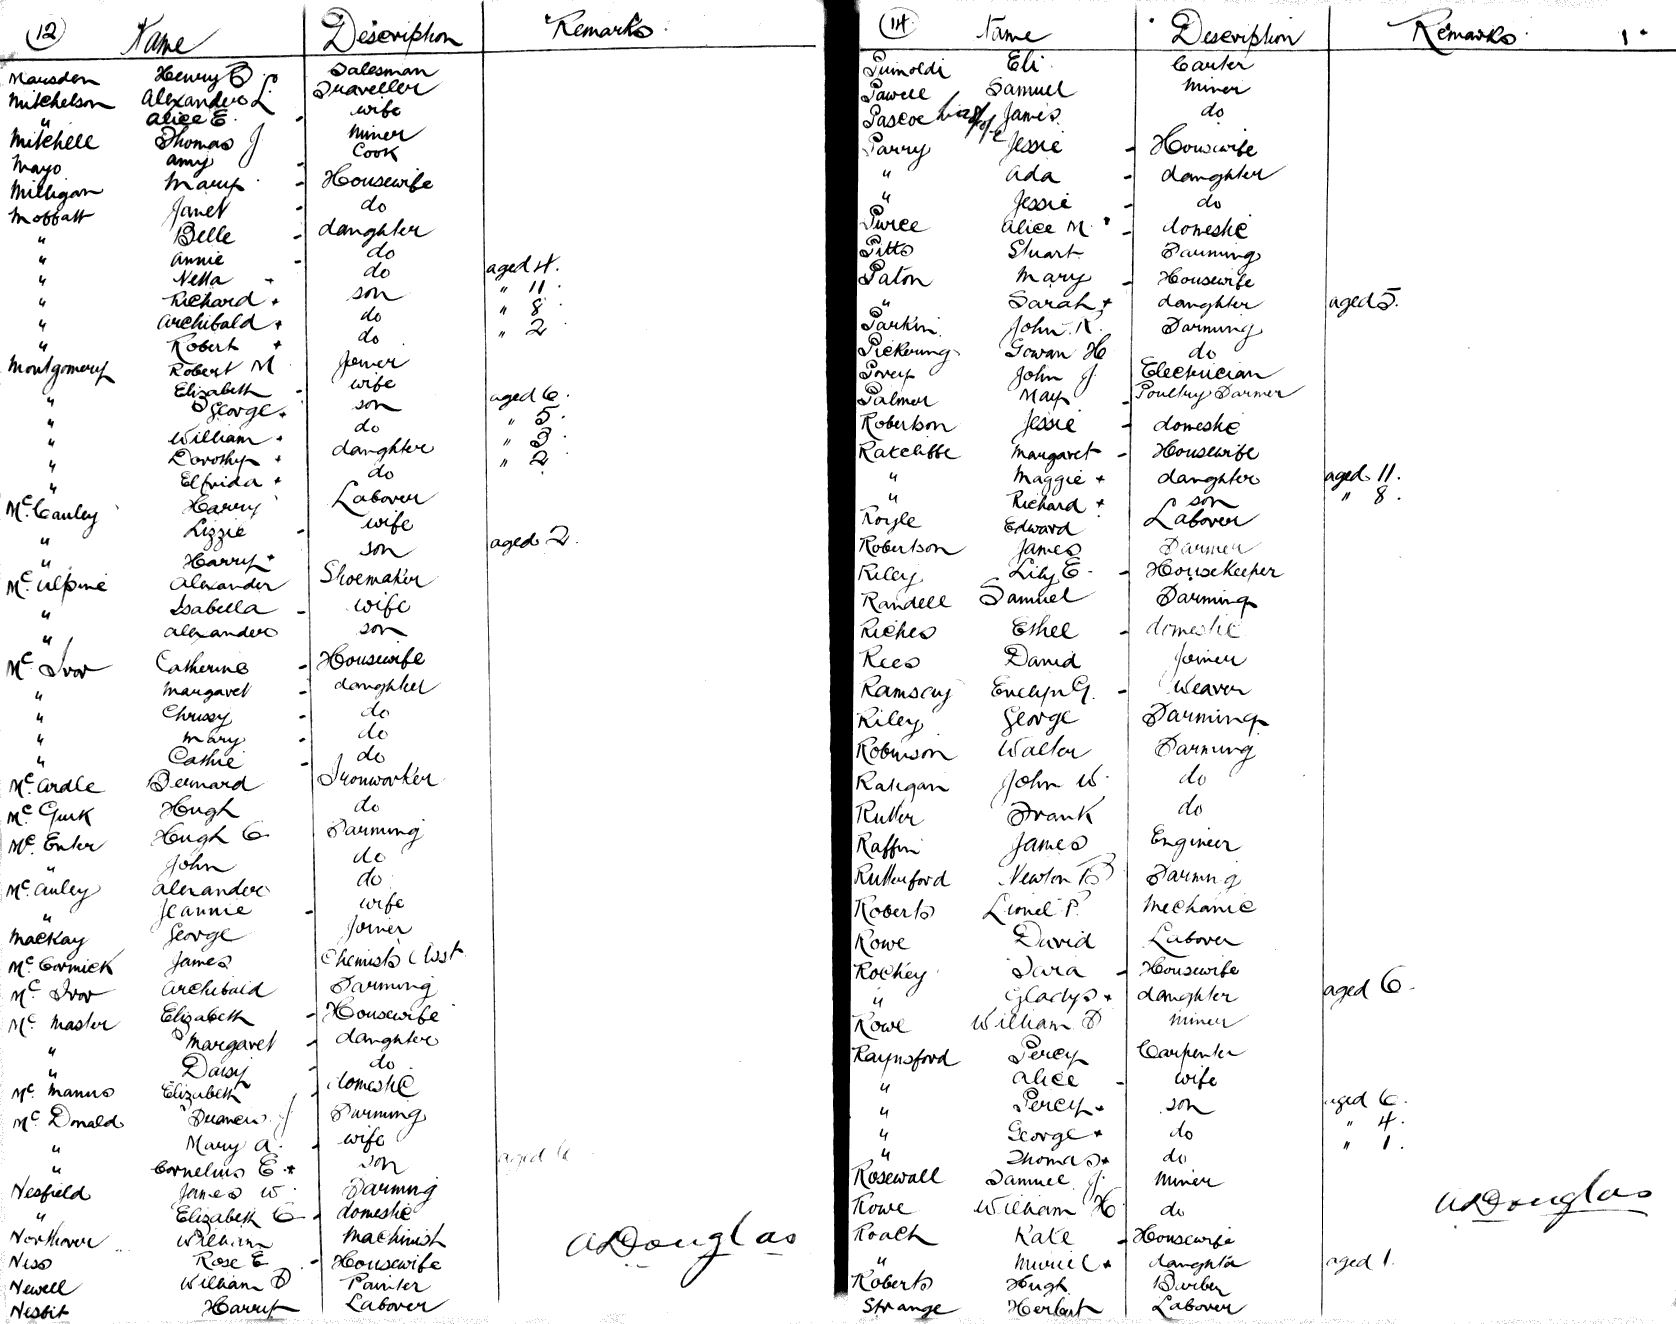 12 Name Description Remarks
Marsden Henry B. Salesman
Mitchelson Alexander L Traveller
" Alice E. - wife
Mitchell Thomas J Miner
Mayo Amy - Cook
Milligan Mary - Housewife
Moffatt Janet - do
" Belle - daughter
" Annie - do
" Netta - do aged 4.
" Richard + son " 11.
" Archibald + do " 8.
" Robert + do " 2.
Montgomery Robert M Joiner
" Elizabeth - wife
" George + son aged 6.
" William + do " 5.
" Dorothy + daughter " 3.
" Elfrida + do " 2.
McCauley Harry Laborer
" Lizzie - wife
" Harry + son aged 2.
McAlpine Alexander Shoemaker
" Isabella - wife
" Alexander son
McIvor Catherine - Housewife
" Margaret - daughter
" Chrissy - do
" Mary - do
" Cathie - do
McArdle Bernard Ironworker
McGurk Hugh do
McEnter Hugh C Farming
" John do
McAuley Alexander do
" Jeannie - wife
MacKay George Joiner
McCormick James Chemists Asst
McIvor Archibald Farming
McMaster Elizabeth - Housewife
" Margaret - daughter
" Daisy - do
McManus Elizabeth - domestic
McDonald Francis J Farming
" Mary A. - wife
" Cornelius E. + son aged 6
Nesfield James W. Farming
" Elizabeth C - domestic
Northover William Machinist
Niss Rose E - Housewife
Newell William D Painter
Nesbit Harry Laborer
ADouglas
14 Name Description Remarks 1.
Eli Carter
Powell Samuel Miner
Pascoe James do
Parry Jessie - Housewife
" Ada - daughter
" Jessie - do
Alice M. - domestic
Pitts Stuart Farming
Paton Mary - Housewife
" Sarah + daughter aged 5.
Parkin John R. Farming
Pickering Gowan H do
Povey John J. Electrician
Palmer May - Poultry Farmer
Robertson Jessie - domestic
Ratcliffe Margaret - Housewife
" Maggie + daughter aged 11.
" Richard + son " 8.
Royle Edward Laborer
Robertson James Farmer
Riley Lily E. - Housekeeper
Randell Samuel Farming
Riches Ethel - domestic
Rees David Joiner
Ramsay Evelyn G. - Weaver
Riley George Farming
Robinson Walter Farming
Ratigan John W. do
Rutter Frank do
Raffin James Engineer
Rutherford Newton B Farming
Roberts Lionel P. Mechanic
Rowe David Laborer
Rockey Sara - Housewife
" Gladys + daughter aged 6.
Rowe William D miner
Raynsford Percy Carpenter
" Alice - wife
" Percy + son aged 6.
" George + do " 4.
" Thomas + do " 1.
Rosewall Samuel J. Miner
Rowe William H do
Roach Kate - Housewife
" Muriel + daughter aged 1.
Roberts Hugh Barber
Strange Herbert Laborer
ADouglas